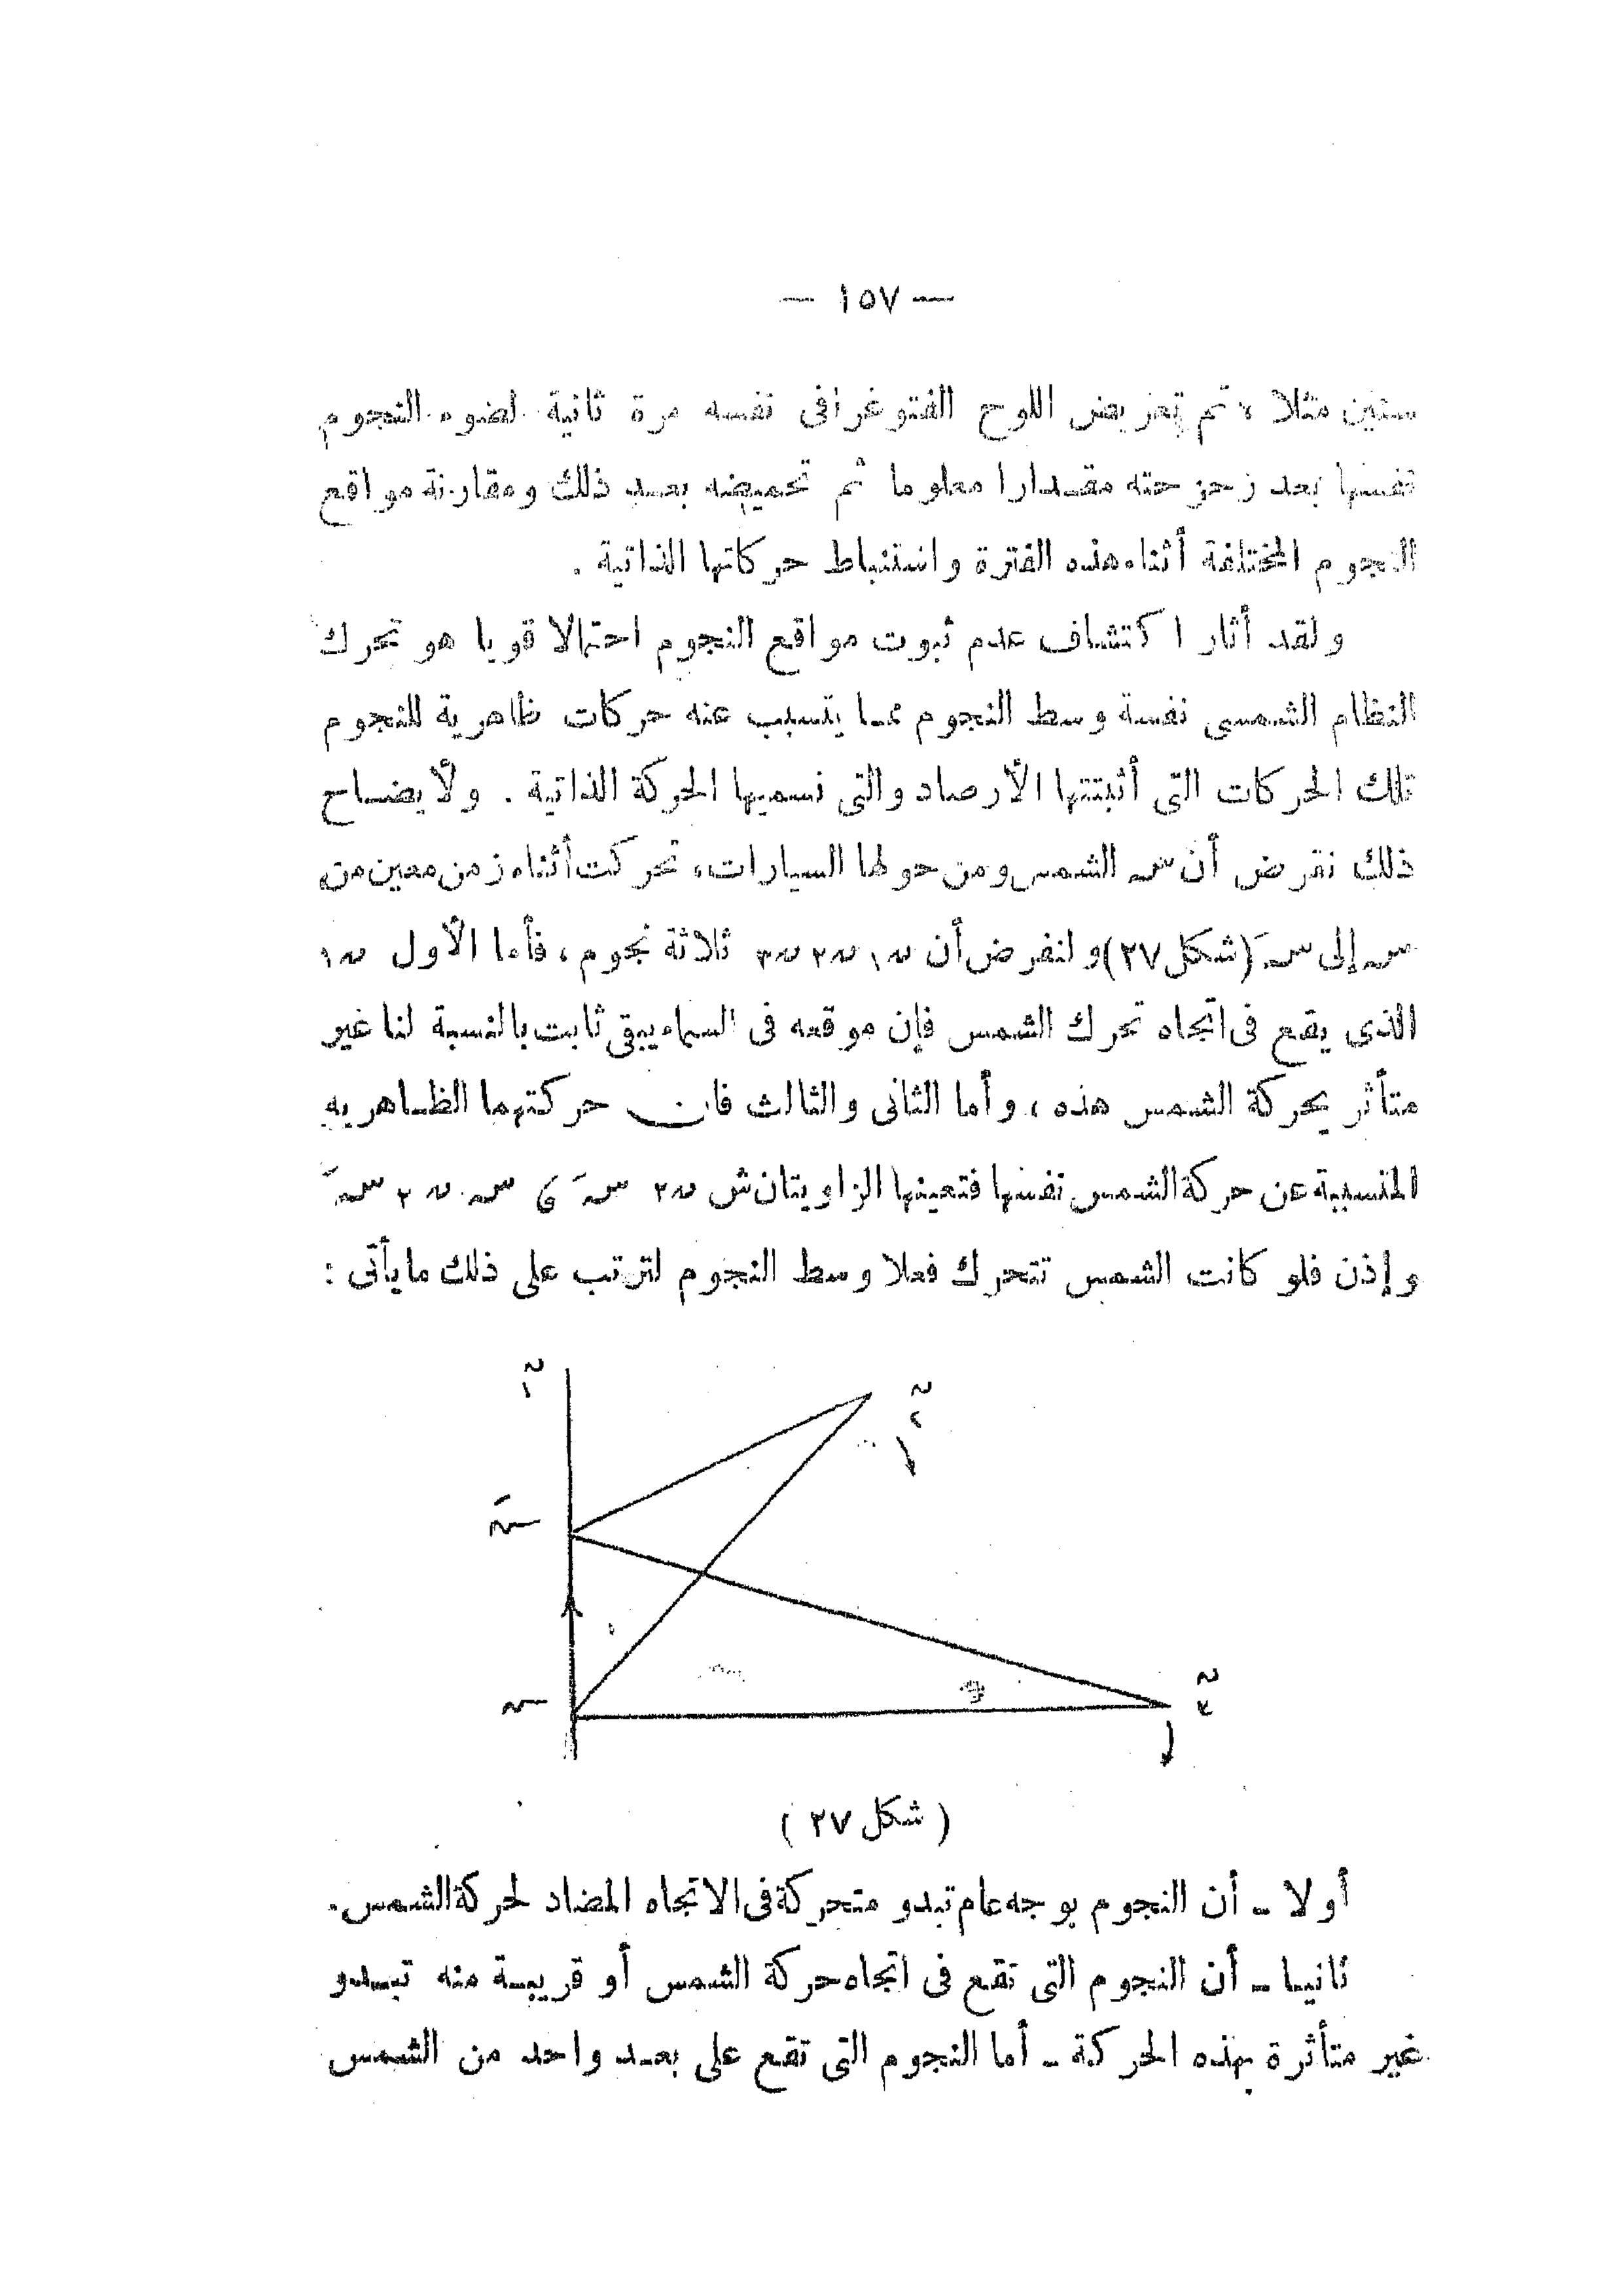 — ١٥٧ —
سنين مثلا ، تم تعريض اللوح الفتوغرافى نفسه مرة ثانية لضوء النجوم
نفسها بعد زحزحته مقدارا معلوما ثم تحميضه بعد ذلك ومقارنة مواقع
النجوم المختلفة أثناء هذه الفترة واستنباط حركاتها الذاتية .
ولقد أثار اكتشاف عدم ثبوت مواقع النجوم احتمالا قويا هو تحرك
النظام الشمسى نفسة وسط النجوم مما يتسبب عنه حركات ظاهرية للنجوم
تلك الحركات التى أثبتتها الأرصاد والتى نسميها الحركة الذاتية . ولأيضاح
ذلك نفرض أن س الشمس ومن حولها السيارات، تحركت أثناء زمن معين من
س إلى سَ (شكل ٢٧) ولنفرض أن ن١ ن٢ ن٣ ثلاثة نجوم ، فأما الأول ن١
الذى يقع فى اتجاه تحرك الشمس فإن موقعه فى السماء يبقى ثابت بالنسبة لنا غير
متأثر بحركة الشمس هذه ، وأما الثانى والثالث فان حركتهما الظاهريه
المتسببة عن حركة الشمس نفسها فتعينها الزاويتان ش ن٢ سَ ى س ن٢ سَ
وإذن فلو كانت الشمس تتحرك فعلا وسط النجوم لترتب على ذلك ما يأتى :
ن١
ن٢
سَ
س
ن٣
( شكل ٢٧ )
أولا ــ أن النجوم بوجه عام تبدو متحركة فى الاتجاه المضاد لحركة الشمس.
ثانيا ــ أن النجوم التى تقع فى اتجاه حركة الشمس أو قريبة منه تبدو
غير متأثرة بهذه الحركة ــ أما النجوم التى تقع على بعد واحد من الشمس